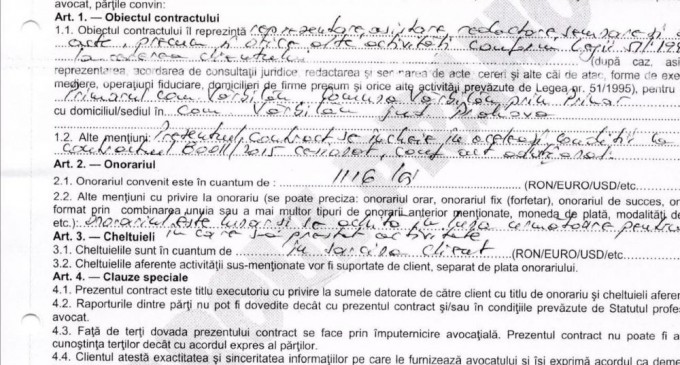 avocat, părțile convin:
Art. 1. — Obiectul contractului
1.1. Obiectul contractului îl reprezintă reprezentare, asistare, redactare, semnare și
acte, precum și orice alte activități conform Legii 51/199
la cererea clientului (după caz, asi
reprezentarea, acordarea de consultații juridice, redactarea și semnarea de acte, cereri și alte căi de atac, forme de exe
mediere, operațiuni fiduciare, domicilieri de firme precum și orice alte activități prevăzute de Legea nr. 51/1995), pentru
Primarul Com Vărbilău, Comuna Vărbilău prin Primar
cu domiciliul/sediul în Com Vărbilău jud Prahova
1.2. Alte mențiuni: Prezentul contract se încheie în aceleași condiții la
contractul /2015 conf act adițional.
Art. 2. — Onorariul
2.1. Onorariul convenit este în cuantum de : 1116 lei (RON/EURO/USD/etc.
2.2. Alte mențiuni cu privire la onorariu (se poate preciza: onorariul orar, onorariul fix (forfetar), onorariul de succes, on
format prin combinarea unuia sau a mai multor tipuri de onorarii anterior menționate, moneda de plată, modalităț de
etc.): Onorariul este lunar și se achită în luna următoare pentru
în care s-a prestat activitate
Art. 3. — Cheltuieli
3.1. Cheltuielile sunt în cuantum de în sarcina client (RON/EURO/USD/etc.
3.2. Cheltuielile aferente activității sus-menționate vor fi suportate de client, separat de plata onorariului.
Art. 4. — Clauze speciale
4.1. Prezentul contract este titlu executoriu cu privire la sumele datorate de către client cu titlu de onorariu și cheltuieli aferen
4.2. Raporturile dintre părți nu pot fi dovedite decât cu prezentul contract și/sau în condițiile prevăzute de Statutul profes
avocat.
4.3. Față de terți dovada prezentului contract se face prin împuternicire avocațială. Prezentul contract nu poate fi a
cunoștința terților decât cu acordul expres al părților.
4.4. Clientul atestă exactitatea și sinceritatea informațiilor pe care le furnizează avocatului și își exprimă acordul ca deme